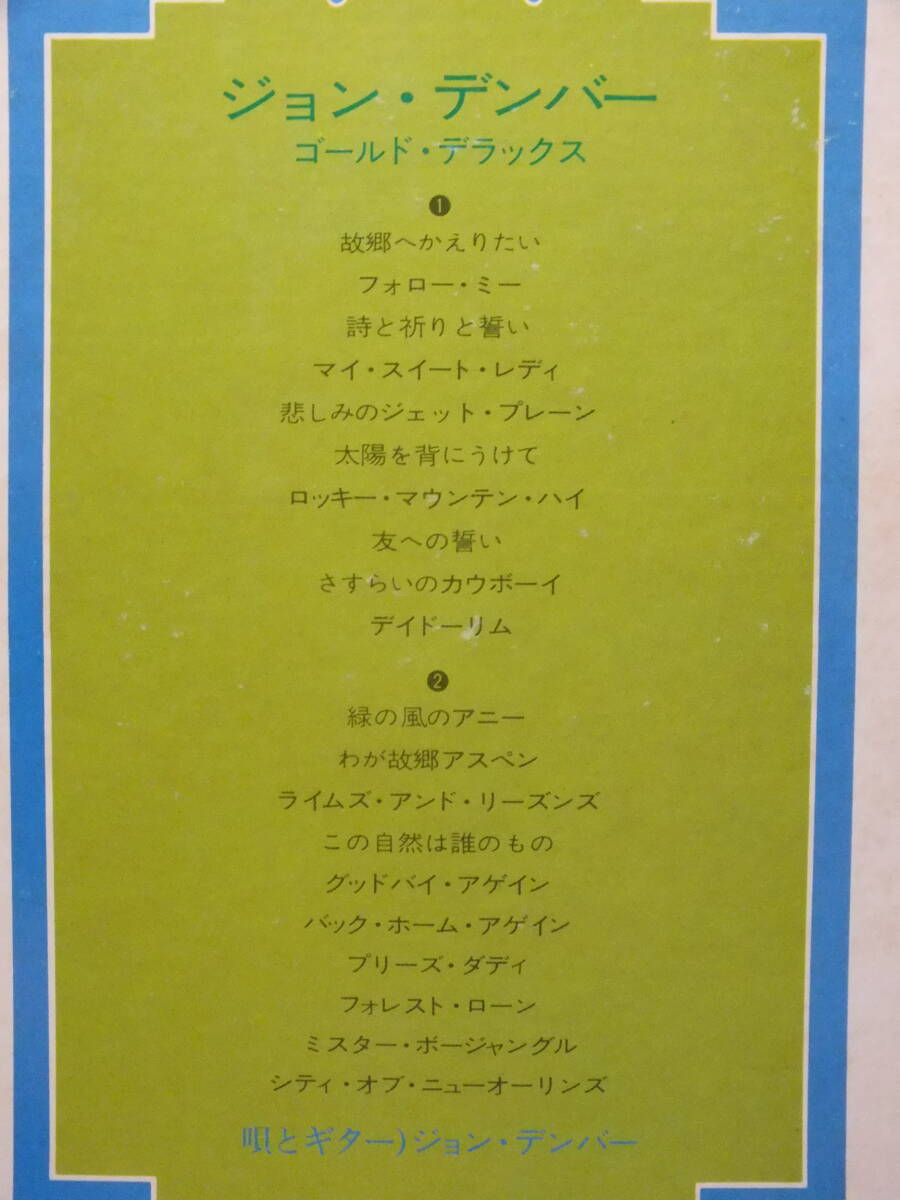 ジョン・デンバー
ゴールド・デラックス
❶
故郷へかえりたい
フォロー・ミー
詩と祈りと誓い
マイ・スイート・レディ
悲しみのジェット・プレーン
太陽を背にうけて
ロッキー・マウンテン・ハイ
友への誓い
さすらいのカウボーイ
デイドーリム
❷
緑の風のアニー
わが故郷アスペン
ライムズ・アンド・リーズンズ
この自然は誰のもの
グッドバイ・アゲイン
バック・ホーム・アゲイン
プリーズ・ダディ
フォレスト・ローン
ミスター・ボージャングル
シティ・オブ・ニューオーリンズ
唄とギター)ジョン・デンバー